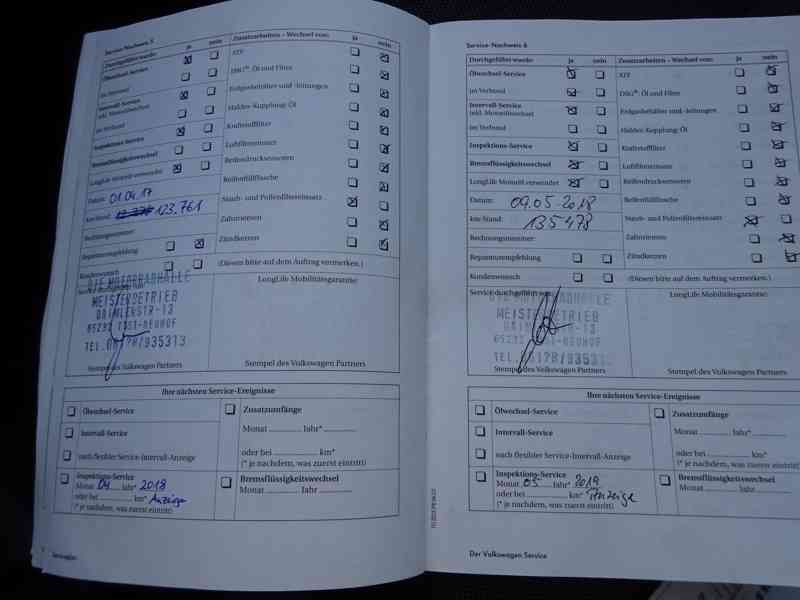 Service-Nachweis 5
Durchgeführt wurde: ja nein
Ölwechsel-Service
im Verbund
Intervall-Service
inkl. Motorölwechsel
im Verbund
Inspektions-Service
Bremsflüssigkeitswechsel
LongLife Motoröl verwendet
Datum: 01.04.17
km-Stand: 123.761
Rechnungsnummer:
Reparaturempfehlung
Kundenwunsch
Zusatzarbeiten – Wechsel von: ja nein
ATF
DSG®: Öl und Filter
Erdgasbehälter und -leitungen
Haldex-Kupplung: Öl
Kraftstofffilter
Luftfiltereinsatz
Reifendrucksensoren
Reifenfüllflasche
Staub- und Pollenfiltereinsatz
Zahnriemen
Zündkerzen
(Diesen bitte auf dem Auftrag vermerken.)
Service durchgeführt von:
DIE MOTORRADHALLE
MEISTERBETRIEB
DAIMLERSTR-13
TEL.06128/935313
Stempel des Volkswagen Partners
LongLife Mobilitätsgarantie:
Stempel des Volkswagen Partners
Ihre nächsten Service-Ereignisse
Ölwechsel-Service
Intervall-Service
nach flexibler Service-Intervall-Anzeige
Zusatzumfänge
Monat Jahr*
oder bei km*
(* je nachdem, was zuerst eintritt)
Inspektions-Service
Monat 04 Jahr* 2018
oder bei km* Anzeige
(* je nachdem, was zuerst eintritt)
Bremsflüssigkeitswechsel
Monat Jahr
Service-Nachweis 6
Durchgeführt wurde: ja nein
Ölwechsel-Service
im Verbund
Intervall-Service
inkl. Motorölwechsel
im Verbund
Inspektions-Service
Bremsflüssigkeitswechsel
LongLife Motoröl verwendet
Datum: 09.05.2018
km-Stand: 135478
Rechnungsnummer:
Reparaturempfehlung
Kundenwunsch
Zusatzarbeiten – Wechsel von: ja nein
ATF
DSG®: Öl und Filter
Erdgasbehälter und -leitungen
Haldex-Kupplung: Öl
Kraftstofffilter
Luftfiltereinsatz
Reifendrucksensoren
Reifenfüllflasche
Staub- und Pollenfiltereinsatz
Zahnriemen
Zündkerzen
(Diesen bitte auf dem Auftrag vermerken.)
Service durchgeführt von:
DIE MOTORRADHALLE
MEISTERBETRIEB
DAIMLERSTR-13
TEL.06128/935313
Stempel des Volkswagen Partners
LongLife Mobilitätsgarantie:
Stempel des Volkswagen Partners
Ihre nächsten Service-Ereignisse
Ölwechsel-Service
Intervall-Service
nach flexibler Service-Intervall-Anzeige
Zusatzumfänge
Monat Jahr*
oder bei km*
(* je nachdem, was zuerst eintritt)
Inspektions-Service
Monat 05 Jahr* 2019
oder bei km* Anzeige
(* je nachdem, was zuerst eintritt)
Bremsflüssigkeitswechsel
Monat Jahr
Der Volkswagen Service